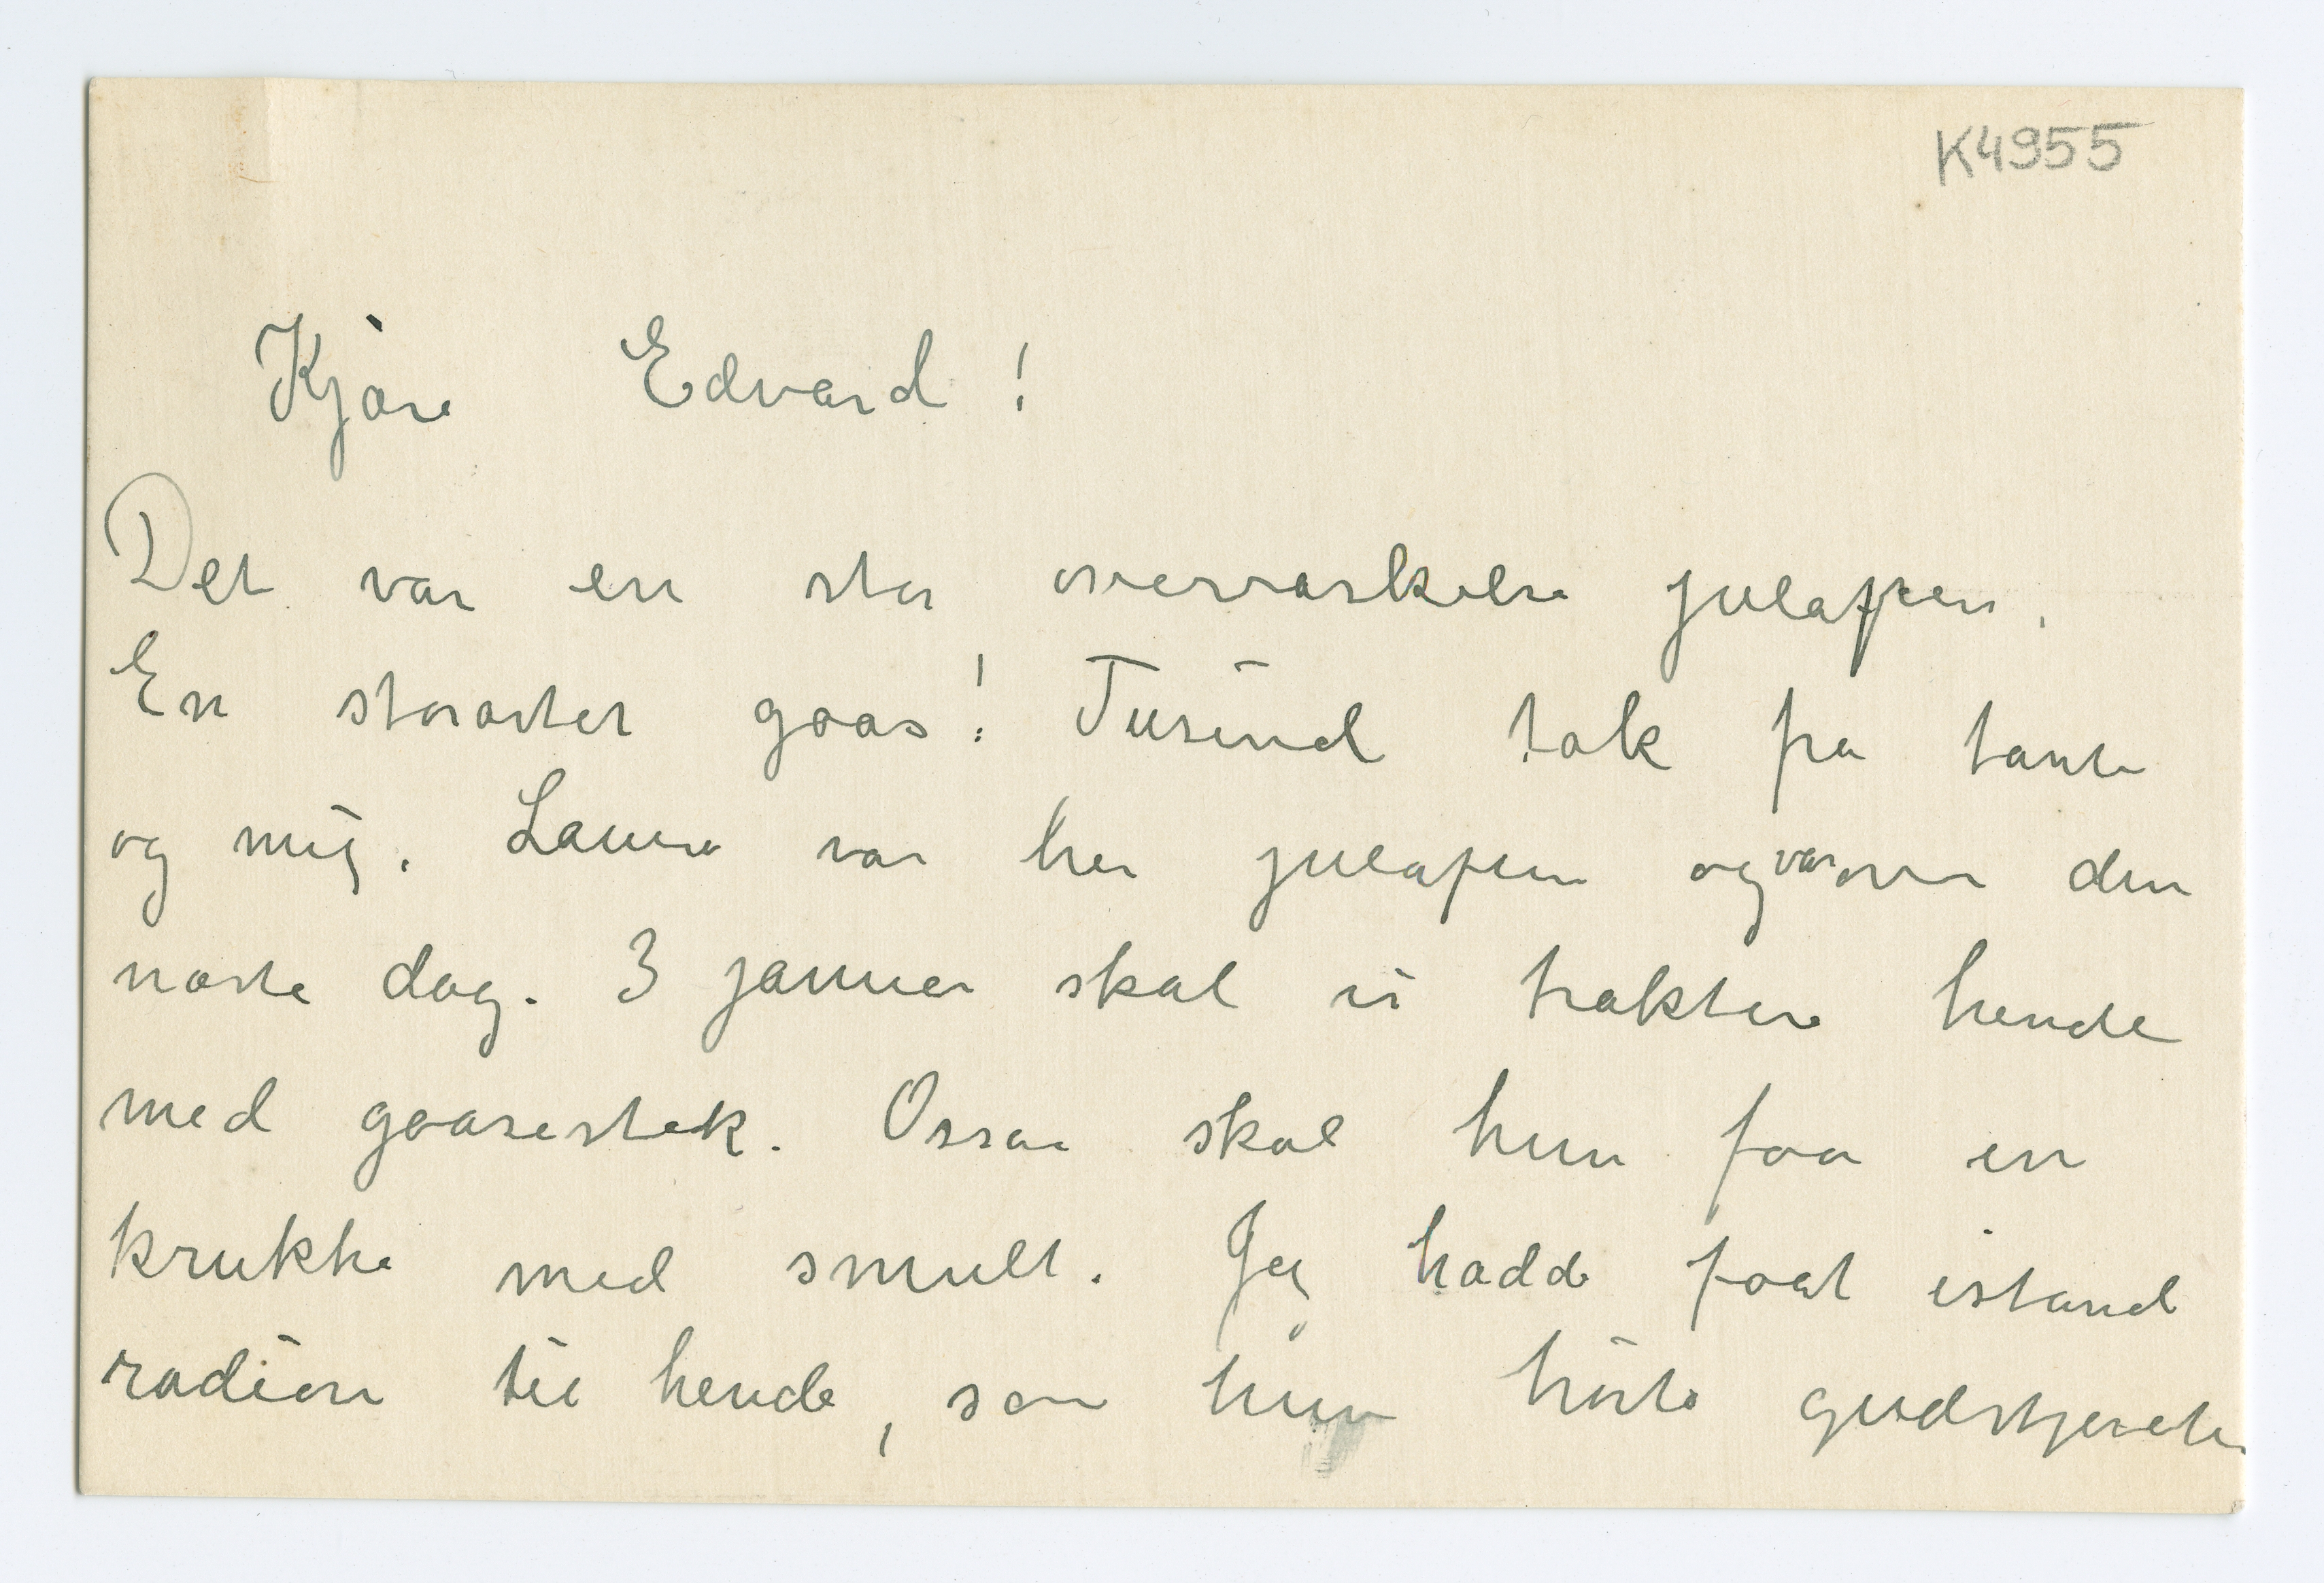 K4955
Kjære Edvard!
Det var en stor overraskelse julaften.
En storartet gaas! Tusind tak fra tante
og mig. Laura var her julaften og var over den
næste dag. 3 januar skal vi traktere hende
med gaasestek. Ossaa skal hun faa en
krukke med smult. Jeg hadde faat istand
radion til hende, saa hun hørte gudstjeneste